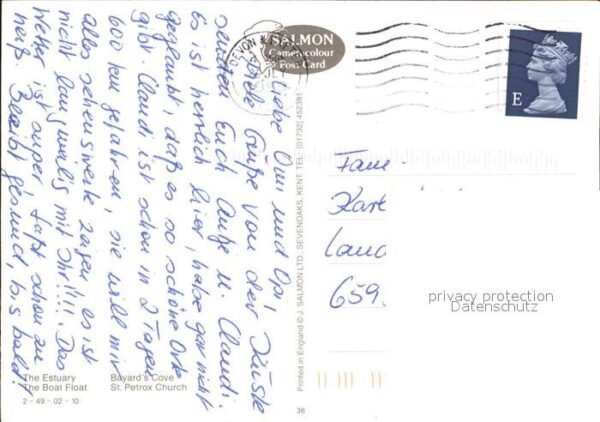 Liebe Omi und Opi!
Viele Grüße von der Küste
senden Euch Antje u. Claudi.
Es ist herrlich hier, habe gar nicht
geglaubt, daß es so schöne Orte
gibt. Claudi ist schon in 2 Tagen
600 km gefahren, sie will mir
alles sehenswerte zeigen, es ist
nicht langweilig mit ihr!!!! Das
Wetter ist super, fast schon zu
heiß. Bleibt gesund, bis bald!
SALMON
Cameracolour
Post Card
DEVON &
E
Printed in England © J. SALMON LTD., SEVENOAKS, KENT. TEL: (01732) 452381
Fam
Kar
Land
659
privacy protection
Datenschutz
The Estuary Bayard's Cove
The Boat Float St. Petrox Church
2 - 49 - 02 - 10
36